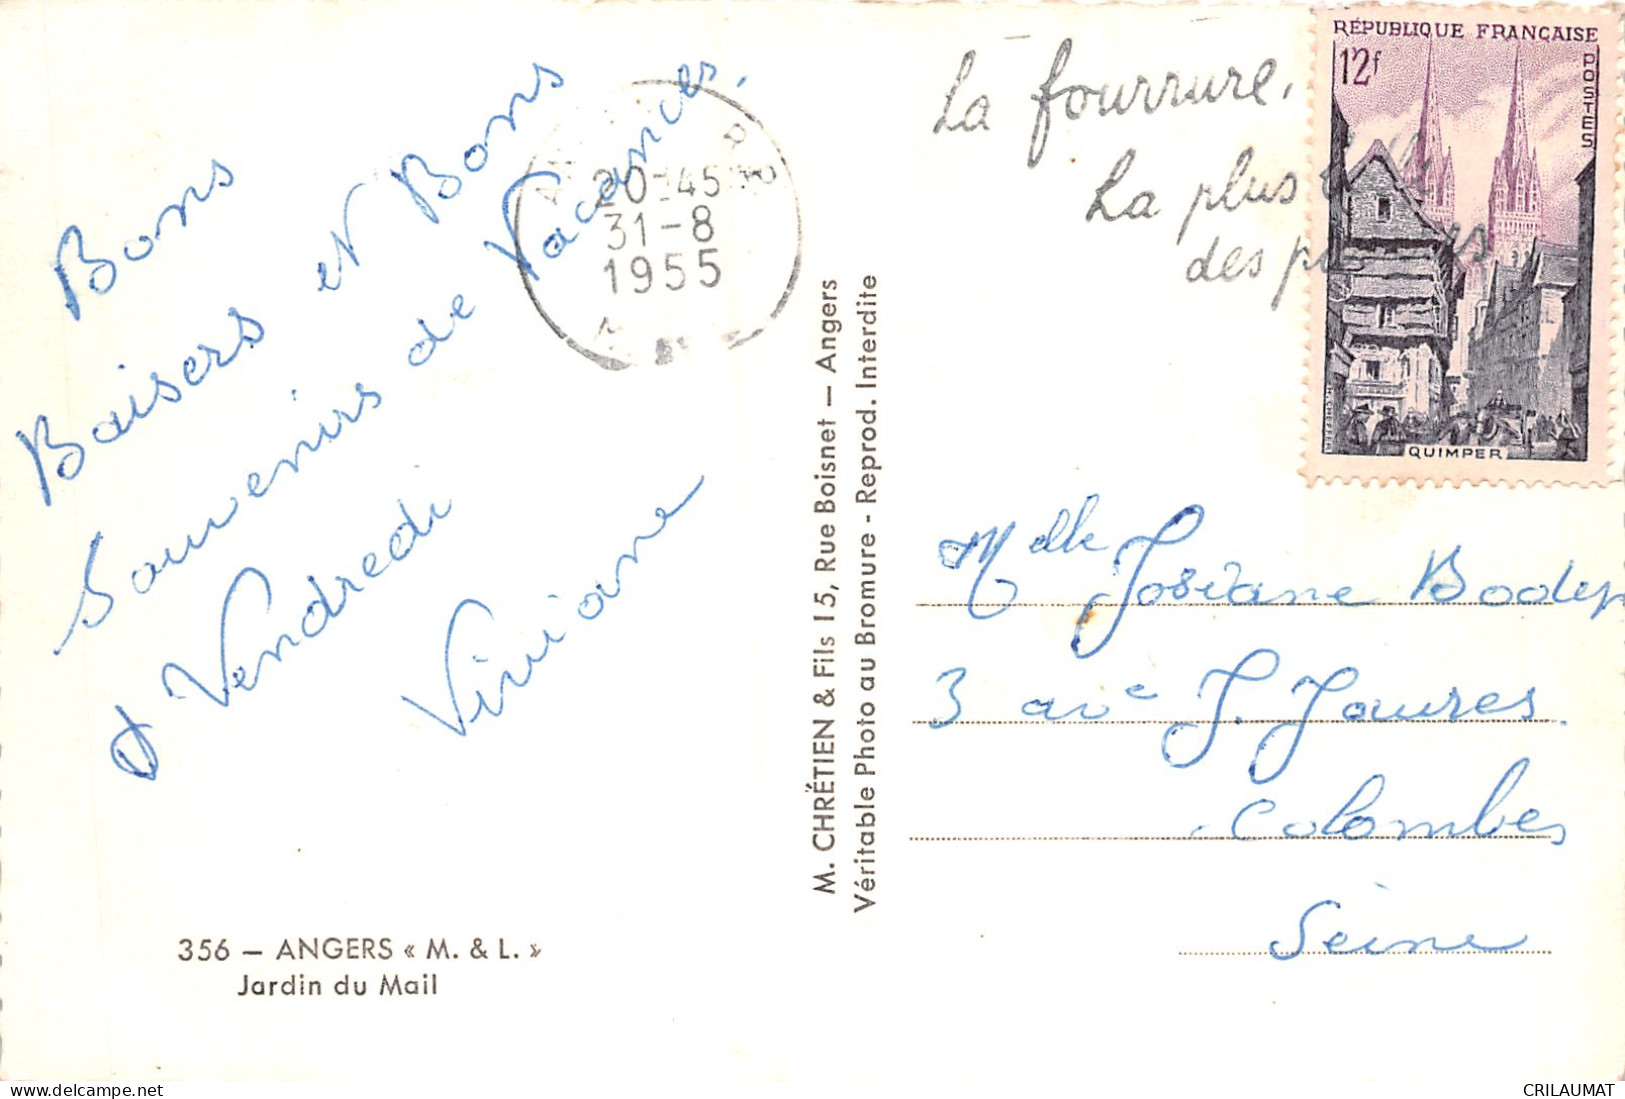 Bons
Baisers et Bons
Souvenirs de Vacances.
Vendredi
Viviane
356 — ANGERS « M. & L. »
Jardin du Mail
20-45
31-8
1955
M. CHRÉTIEN & Fils 15, Rue Boisnet — Angers
Véritable Photo au Bromure - Reprod. Interdite
La fourrure,
La plus
des
RÉPUBLIQUE FRANÇAISE
12f
POSTES
QUIMPER
Melle Josiane
3 ave J. Jaures.
Colombes
Seine
CRILAUMAT